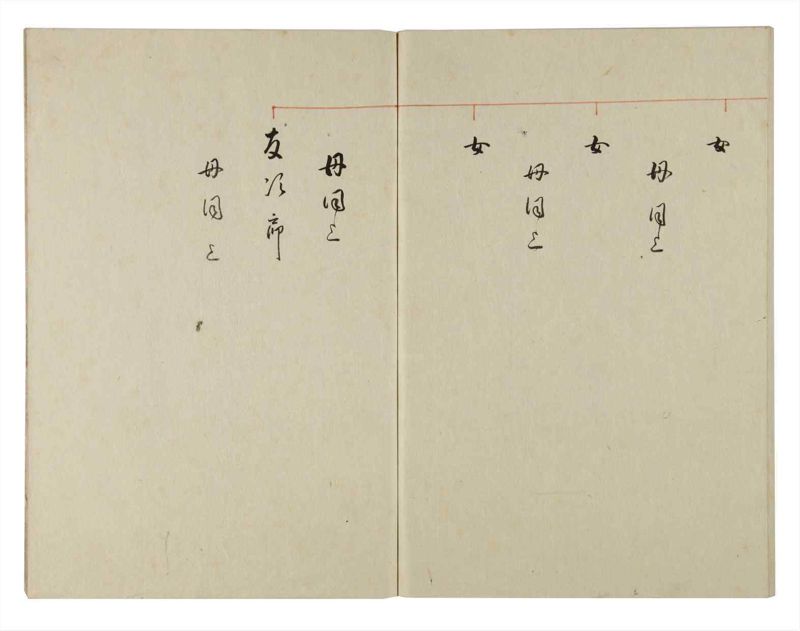 女
母同上
女
母同上
女
母同上
友次郎
母同上